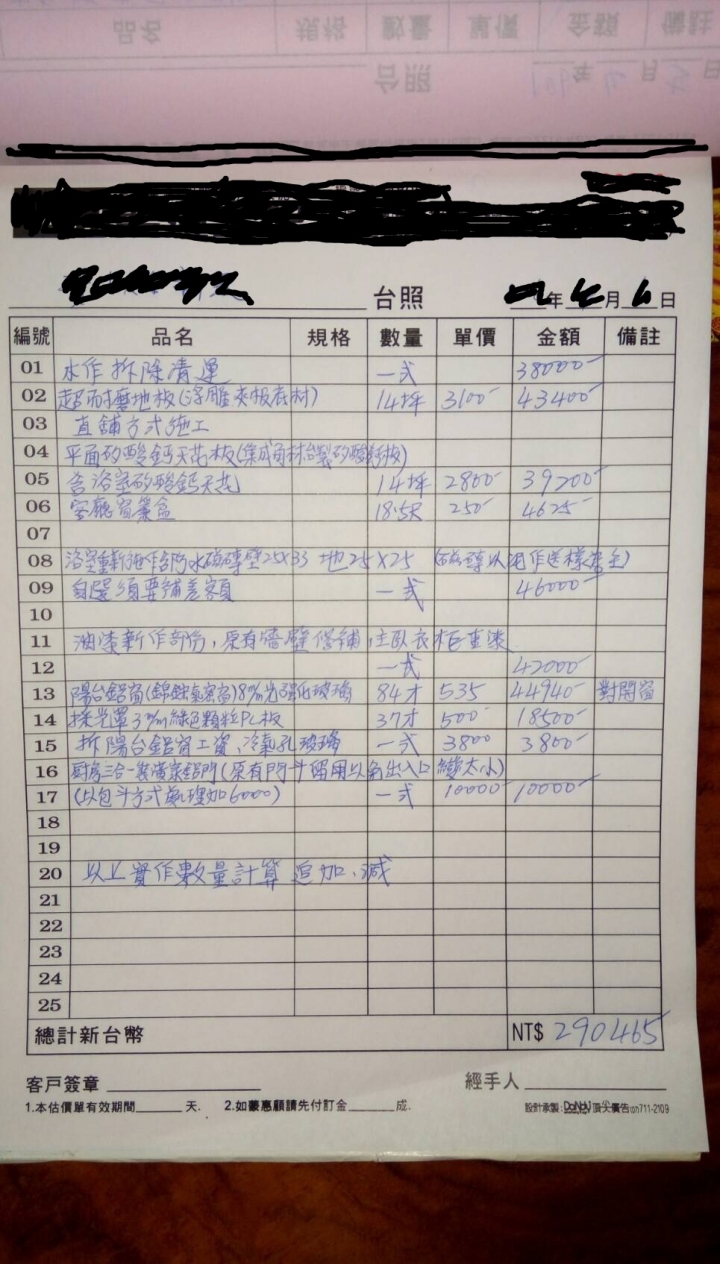 品名 規格 數量 單價 金額 備註
台照 年 月 日
台照 年 月 6 日
編號 品名 規格 數量 單價 金額 備註
01 水作拆除清運 一式 38000
02 超耐磨地板(浮雕夾板底材) 14坪 3100 43400
03 直鋪方式施工
04 平面矽酸鈣天花板(集成角材台製矽酸鈣板)
05 含浴室矽酸鈣天花 14坪 2800 39200
06 客廳窗簾盒 18.5尺 250 4625
07
08 浴室重新施作含防水磁磚壁25X33 地25X25 (磁磚以
09 自選須要補差額 一式 46000
10
11 油漆新作部份,原有牆壁修補,主臥衣柜重漆
12 一式 42000
13 陽台鋁窗(錦鋐氣密窗)8m/m光強化玻璃 84才 535 44940 對開窗
14 採光罩3m/m綠色顆粒PC板 37才 500 18500
15 拆陽台鋁窗工資、冷氣孔玻璃 一式 3800 3800
16 廚房三合一裝潢京鋁門(原有門斗留用以免出入口變太小)
17 (以包斗方式處理加6000) 一式 10000 10000
18
19
20 以上實作數量計算 追加、減
21
22
23
24
25
總計新台幣 NT$ 290465
客戶簽章 經手人
1.本估價單有效期間 天. 2.如蒙惠顧請先付訂金 成. 設計承製: DoNoV 頂尖廣告 711-2109